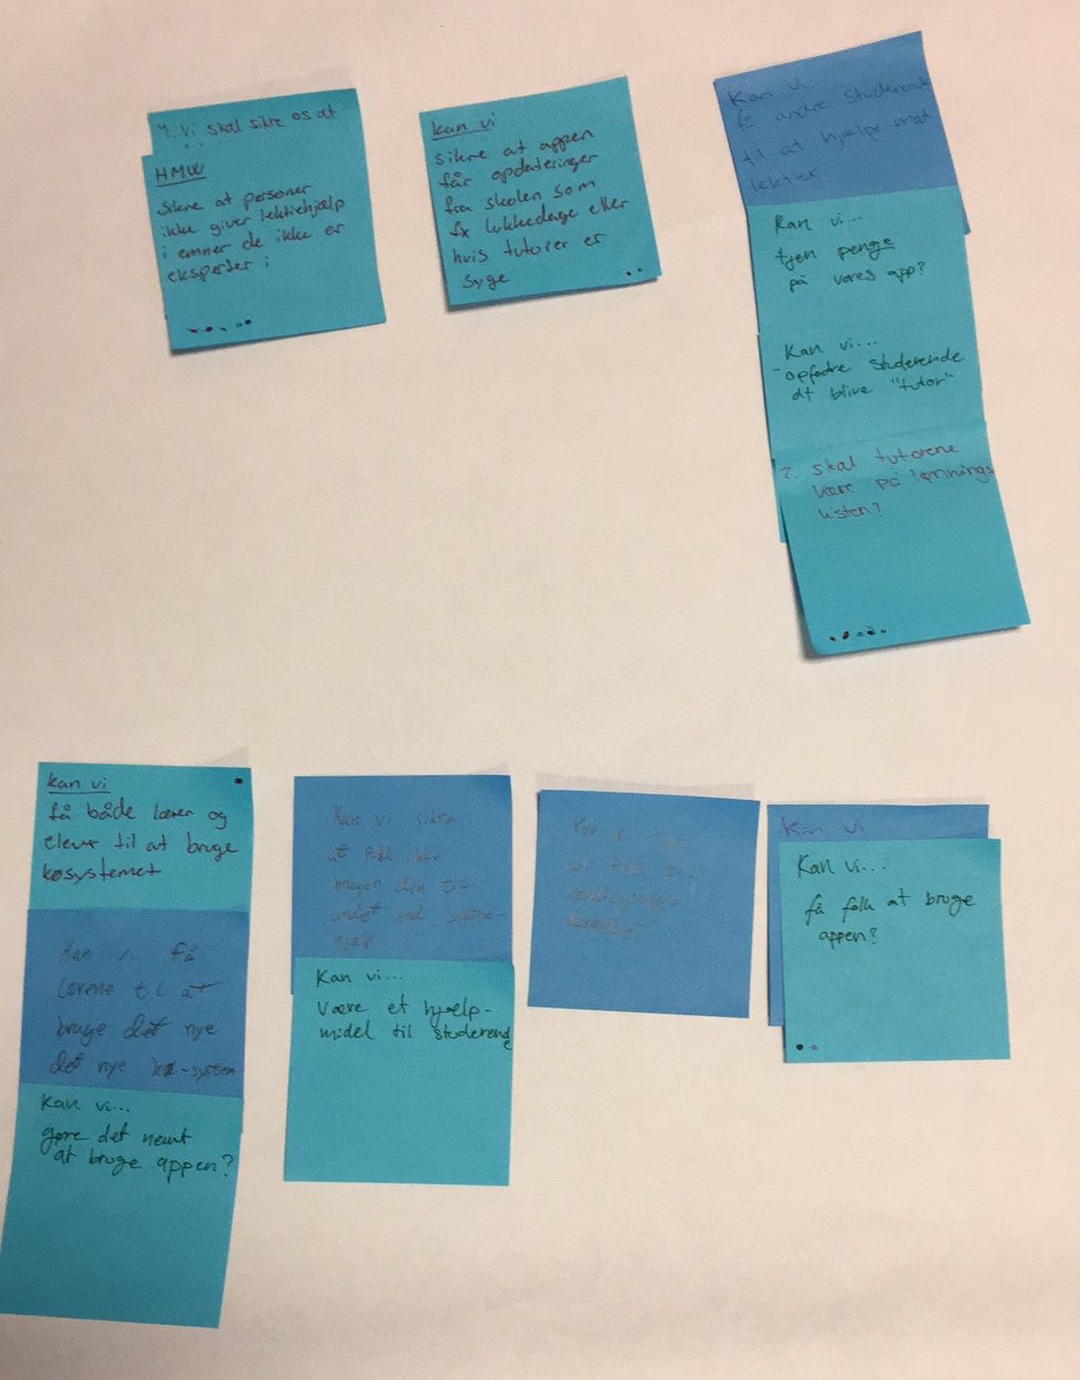 Vi skal sikre os at
HMW
Sikre at personer
ikke giver lektiehjælp
i emner de ikke er
eksperter i
kan vi
sikre at appen
får opdateringer
fra skolen som
fx lukkedage eller
hvis tutorer er
syge
Kan vi
få andre studerende
til at hjælpe med
lektier
Kan vi...
tjen penge
på vores app?
Kan vi...
opfodre studerende
at blive "tutor"
2. skal tutorene
være på lønnings
listen?
kan vi
få både lærer og
elever til at bruge
køsystemet
Kan vi få
lærene til at
bruge det nye
det nye kø-system
Kan vi...
gøre det nemt
at bruge appen?
Kan vi sikre
at folk ikke
bruger den til
andet end
Kan vi...
Være et hjælp-
midel til studerende
Kan vi
Kan vi...
få folk at bruge
appen?